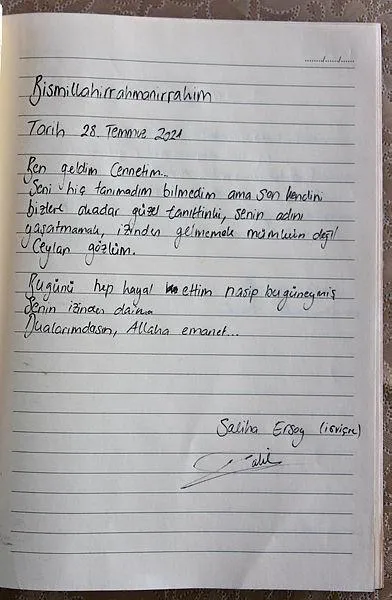 ....../....../......
Bismillahirrahmanirrahim
Tarih 28. Temmuz 2021
Ben geldim Cennetim...
Seni hiç tanımadım bilmedim ama sen kendini
bizlere okadar güzel tanıttınki, senin adını
yaşatmamak, izinden gelmemek mümkün değil
Ceylan gözlüm.
Bugünü hep hayal ettim nasip bugüneymiş
Senin izinden daima
Dualarımdasın, Allaha emanet...
Saliha Ersoy (isviçre)